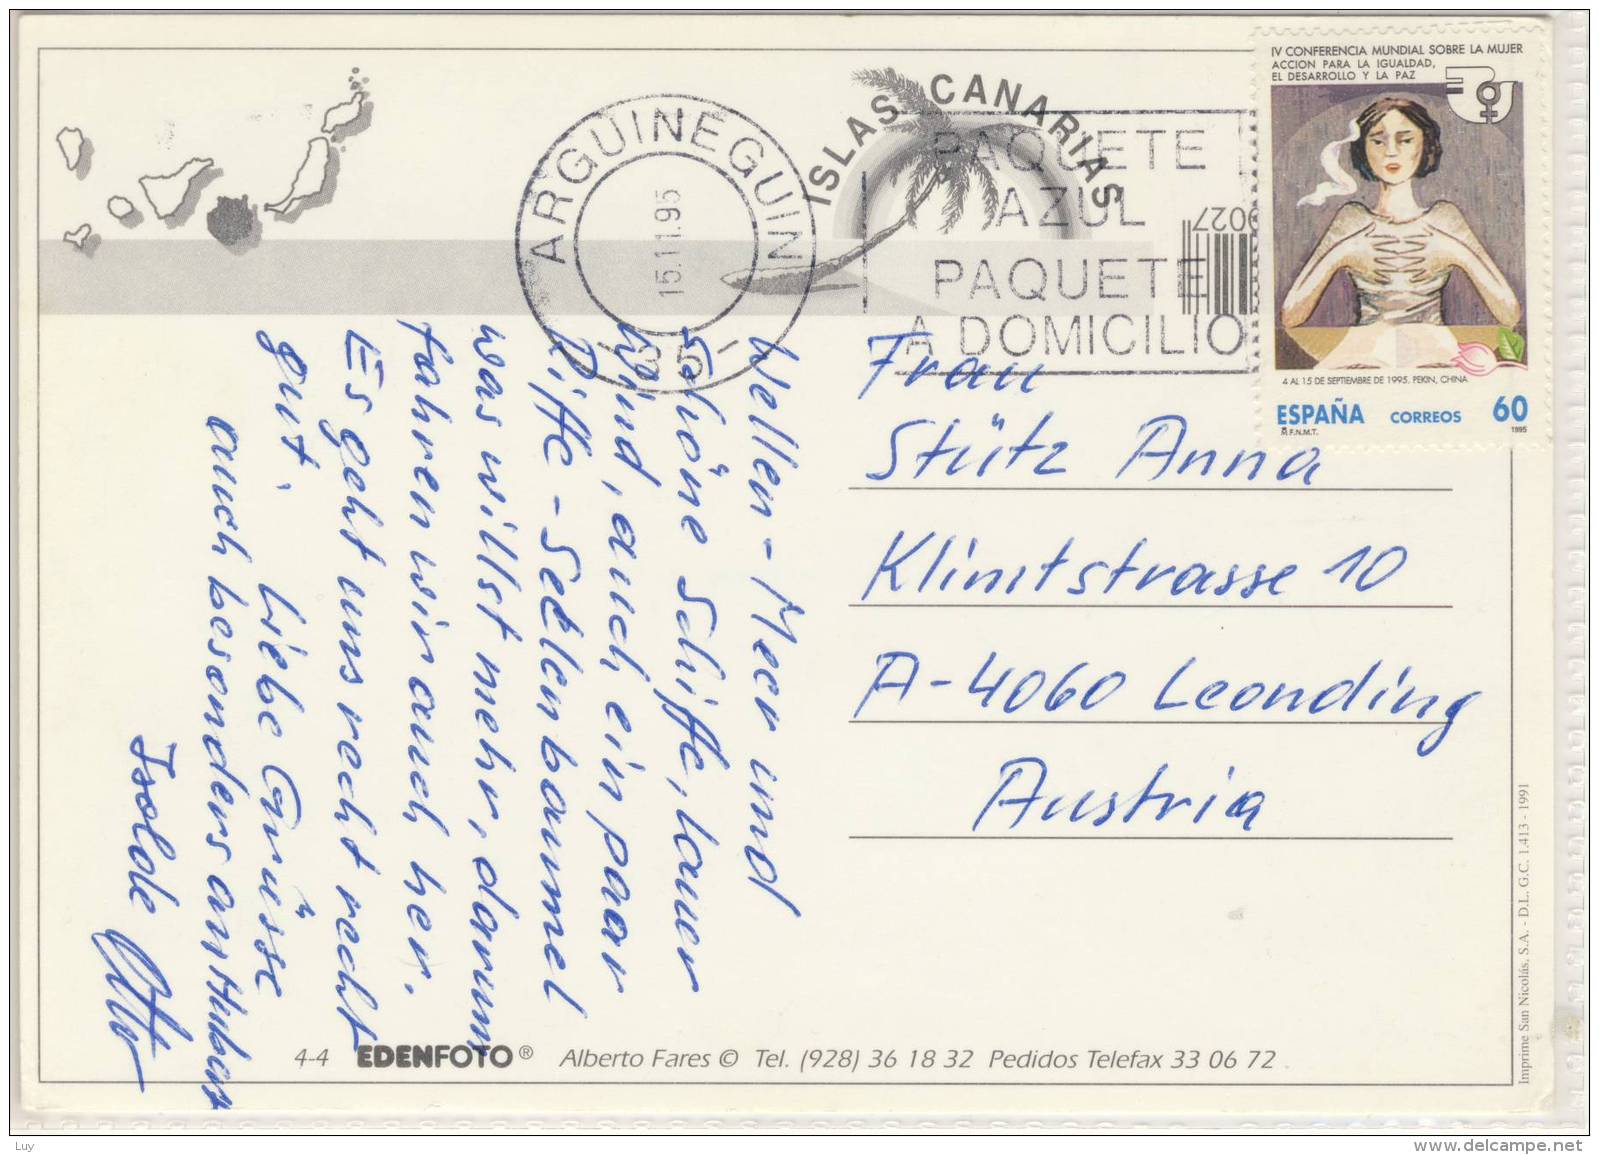 IV CONFERENCIA MUNDIAL SOBRE LA MUJER
ACCION PARA LA IGUALDAD,
EL DESARROLLO Y LA PAZ
4 AL 15 DE SEPTIEMBRE DE 1995. PEKIN, CHINA
ESPAÑA CORREOS 60
F.N.M.T. 1995
ISLAS CANARIAS
ARGUINEGUIN
15.11.95
35
PAQUETE
AZUL
PAQUETE
A DOMICILIO
0027
Wellen - Meer und
schöne Schiffe, lauer
Wind, auch ein paar
Riffe - Seelenbaumel
was willst mehr, darum
fahren wir auch her.
Es geht uns recht recht
gut.
Liebe Grüsse
auch besonders an Hubert
Isolde
Otto
Frau
Stütz Anna
Klimtstrasse 10
A-4060 Leonding
Austria
4-4 EDENFOTO® Alberto Fares © Tel. (928) 36 18 32 Pedidos Telefax 33 06 72
Imprime San Nicolás, S.A. - D.L. G.C. 1.413 - 1991
Luy
www.delcampe.net